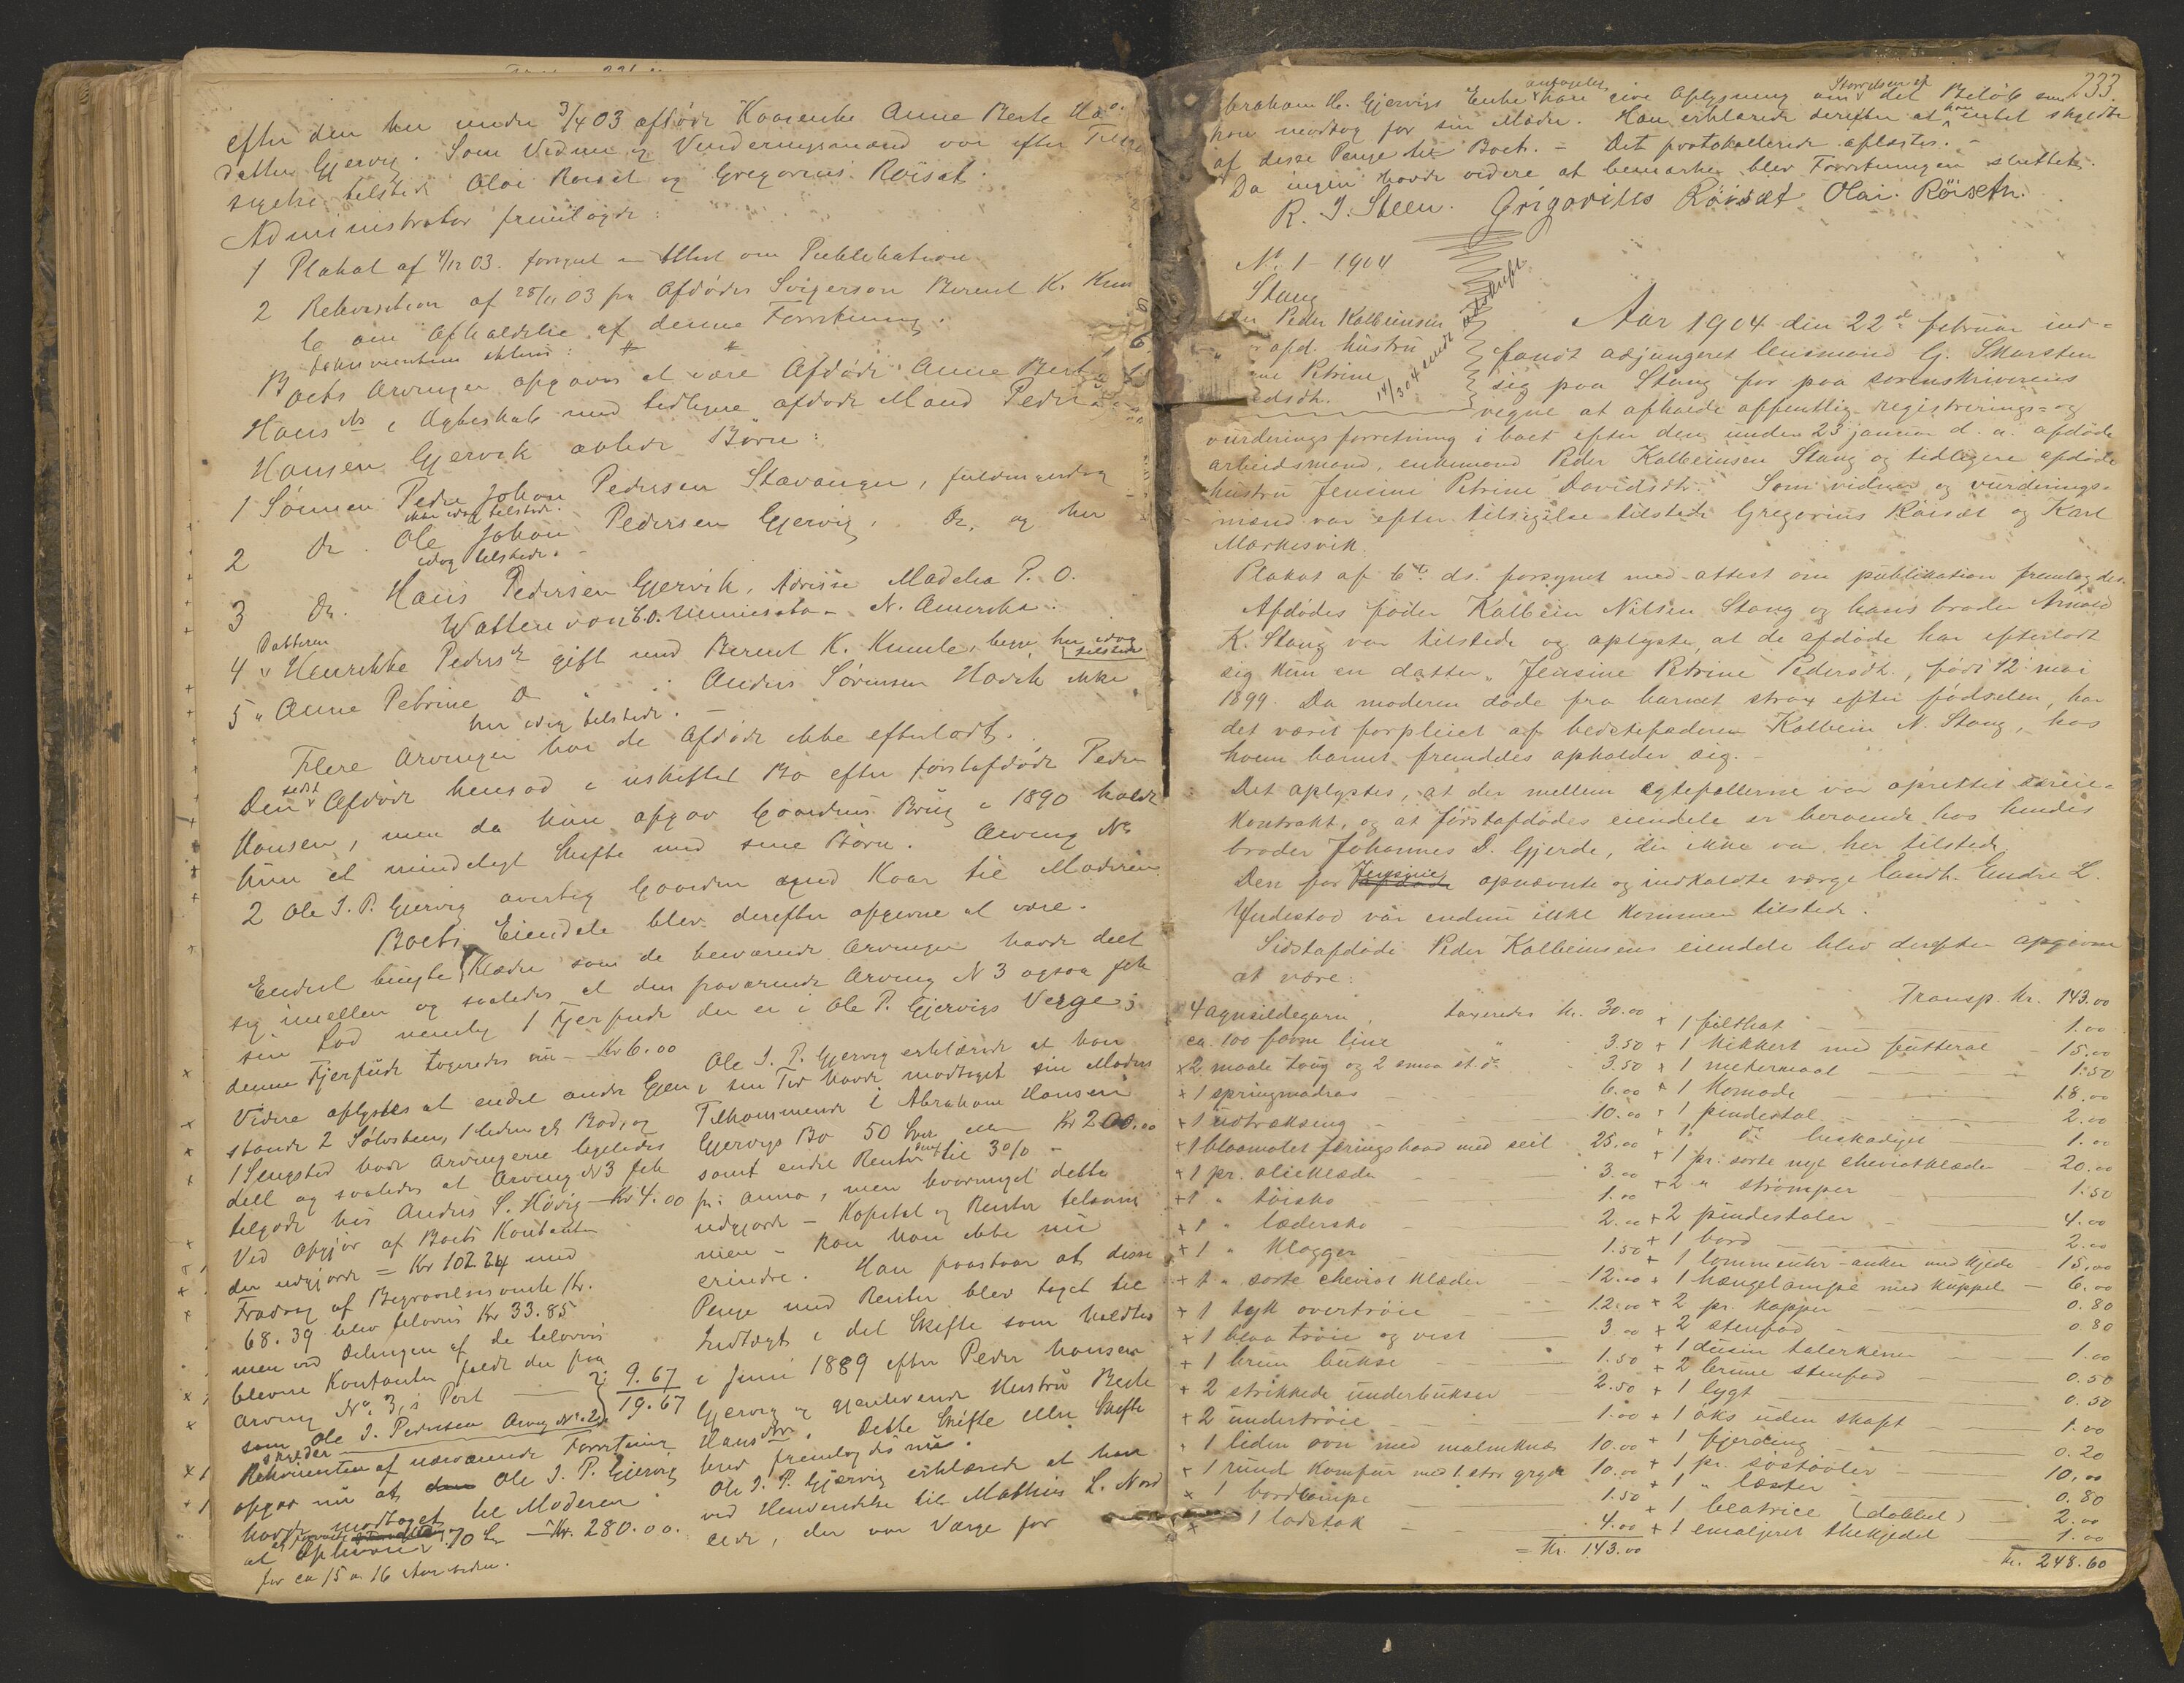 efter den her under 3/4 03 afdøde Kaarenke Anne Berte Ha
datter Gjervig. Som Vidner og Vurderingsmænd var efter Tilsi
gelse tilstede Olai Røisæt og Gregorius Røisæt.
Administrator fremlagde:
1 Plakat af 4/12 03. forsynet m Attest om Publikation
2 Rekvisition af 28/11 03 fra Afdødes Svigersøn Berent K. Kum
le om Afholdelse af denne Forretning.
Dokumenterne
Boets Arvinger opgaves at være Afdøde Anne Berte
Hans dtr i Ægteskab med tidligere afdøde Mand Peder
Hansen Gjervik avlede Børn:
1 Sønnen Peder Johan Pedersen Stavanger, fuldmyndig
ikke idag tilstede.
2 Do. Ole Johan Pedersen Gjervig, Do. og her
idag tilstede.
3 Do. Hans Pedersen Gjervik, Adresse Madelia P. O.
Watten van Co. Minnesota - N. Amerika.
4 Datteren " Henrikke Pedersdtr gift med Berent K. Kumle, begge her idag tilstede
5 " Anne Petrine Do " " Anders Sørensen Hovik ikke
her idag tilstede.
Flere Arvinger har de Afdøde ikke efterladt.
Den sidst Afdøde hensad i uskiftet Bo efter førstafdøde Peder
Hansen, men da hun opgav Gaardens Brug i 1890 holdt
hun et mindeligt Skifte med sine Børn. Arving No
2 Ole J. P. Gjervig overtog Gaarden mod Kaar til Moderen
Boets Eiendele blev derefter opgivne at være.
Endel brugte Klæder som de beværende Arvinger havde delt
sig imellem og saaledes at den fraværende Arving N 3 ogsaa fik
sin Lod nemlig 1 Fjerpude der er i Ole P. Gjervigs Værge;
denne Fjerpude taxeredes nu - Kr 6.00
Videre oplystes at endel andre Gjen
stande 2 Sølvskeer, 1 liden gl. Bod, og
1 Sengsted havde Arvingerne ligeledes
delt og saaledes at Arving N 3 fik
tilgode hos Anders S. Hovig - Kr 4.00
Ved Opgjør af Boets Kontanter
der udgjorde = Kr 102.24 med
Fradrag af Begravelsesomk. Kr.
68.39 blev tilovers Kr 33.85
men ved Delingen af de tilovers
blevne Kontanter faldt der paa
Arving No 3, s Part — 9.67
19.67
som Ole J. Pedersen Arving No 2
Rekvirenten af nærværende Forretning
opgav nu at den Ole J. P. Gjervig
havde modtaget til Moderen
at Opbevare 70 Spd - Kr. 280.00.
for ca 15 a 16 Aar siden.
Ole J. P. Gjervig erklærede at han
i sin Tid havde modtaget sin Moders
Tilkommende i Abraham Hansen
Gjervigs Bo 50 Spdr eller Kr 200.00
samt endel Renter til 3%
pr. anno, men hvormeget dette
udgjorde - Kapital og Renter tilsam
men - kan han ikke nu
erindre. Han paastaar at disse
Penge med Renter blev taget til
Indtægt i det Skifte som holdtes
i Juni 1889 efter Peder Hansen
Gjervig og gjenlevende Hustru Berte
Hansdtr. Dette Skifte eller Skifte
brev fremlagdes nu.
Ole J. P. Gjærvig erklærede at han
ved Henvendelse til Mathias L. Nord
eide, der var Værge for
233.
braham H. Gjervigs Enke antagelig kan give Oplysning om Størrelsen af det Beløb som
han modtog for sin Moder. Han erklærede derefter at han intet skyldte
af disse Penge til Boet. - Det protokollerede oplæstes. -
Da ingen havde videre at bemærke blev Forretningen sluttet.
R. J. Steen. Grigorius Röisæt Olai. Röiseth.
No. 1 - 1904
Stang
Peder Kolbeinsen
afd. hustru
ne Petrine
idsdtr.
14/3 04 sendt udskrift
Aar 1904 den 22de februar ind-
fandt adjungeret lensmand G. Skorsten
sig paa Stang for paa sorenskriverens
vegne at afholde offentlig registrerings- og
vurderingsforretning i boet efter den under 23 januar d. a. afdøde
arbeidsmand, enkemand Peder Kolbeinsen Stang og tidligere afdøde
hustru Jensine Petrine Davidsdtr. Som vidner og vurderings-
mænd var efter tilsigelse tilstede Gregorius Röisæt og Karl
Markesvik.
Plakat af 6te ds. forsynet med attest om publikation fremlagdes.
Afdødes fader Kolbein Nilsen Stang og hans broder Arnold
K. Stang var tilstede og oplyste, at de afdøde har efterladt
sig kun en datter " Jensine Petrine Pedersdt., født 12 mai
1899. Da moderen døde fra barnet strax efter fødselen, har
det været forpleiet af bedstefaderen Kolbein N. Stang, hos
hvem barnet fremdeles opholder sig. -
Det oplystes, at der mellem egtefællerne var oprettet særeie-
kontrakt, og at førstafdødes eiendele er beroende hos hendes
broder Johannes D. Gjerde, der ikke var her tilstede.
Den for Jensine opnævnte og indkaldte værge landh. Endre L.
Yndestad var endnu ikke kommen tilstede.
Sidstafdøde Peder Kolbeinsens eiendele blev derefter opgivne
at være:
4 agnsildegarn, taxeredes kr. 30.00
ca. 100 favne line " 3.50
x 2 maale toug og 2 smaa st. do 3.50
+ 1 springmadras 6.00
+ 1 udtrækseng 10.00
+ 1 blaamalet færingsbaad med seil 25.00
+ 1 pr. olieklæder 3.00
+ 1 " töisko 1.00
+ 1 " lædersko 2.00
+ 1 " klogger 1.50
+ 1 " sorte cheviot klæder 12.00
+ 1 tyk overtröie 12.00
+ 1 blaa tröie og vest 3.00
+ 1 brun bukse 1.50
+ 2 strikkede underbukser 2.50
+ 2 undertröie 1.00
" 1 liden ovn med malmknæ 10.00
+ 1 rund komfur med 1 stor gryde 10.00
x 1 bordlampe 1.50
+ 1 ladstok 4.00
= Kr. 143.00
Transp. kr. 143.00
+ 1 filthat 1.00
+ 1 kikkert med futteral 15.00
x 1 metermaal 1.50
+ 1 komode 18.00
+ 1 pindestol 2.00
+ 1 do beskadiget 1.00
+ 1 pr. sorte nye cheviotklæder 20.00
+ 2 " strømper 1.50
+ 2 pindestoler 4.00
+ 1 bord 2.00
+ 1 lommeuhr - anker med kjede 15.00
+ 1 hængelampe med kuppel 6.00
+ 2 pr. kopper 0.80
+ 2 stenfad 0.80
+ 1 dusin talerkener 1.00
+ 2 brune stenfad 0.50
+ 1 lygt 0.50
+ 1 öks uden skaft 1.00
+ 1 fjerding 0.20
+ 1 pr. söstövler 10.00
+ 1 " læster 0.80
+ 1 beatrice (dobbel) 2.00
+ 1 emaljeret thekjedel 1.00
kr. 248.60